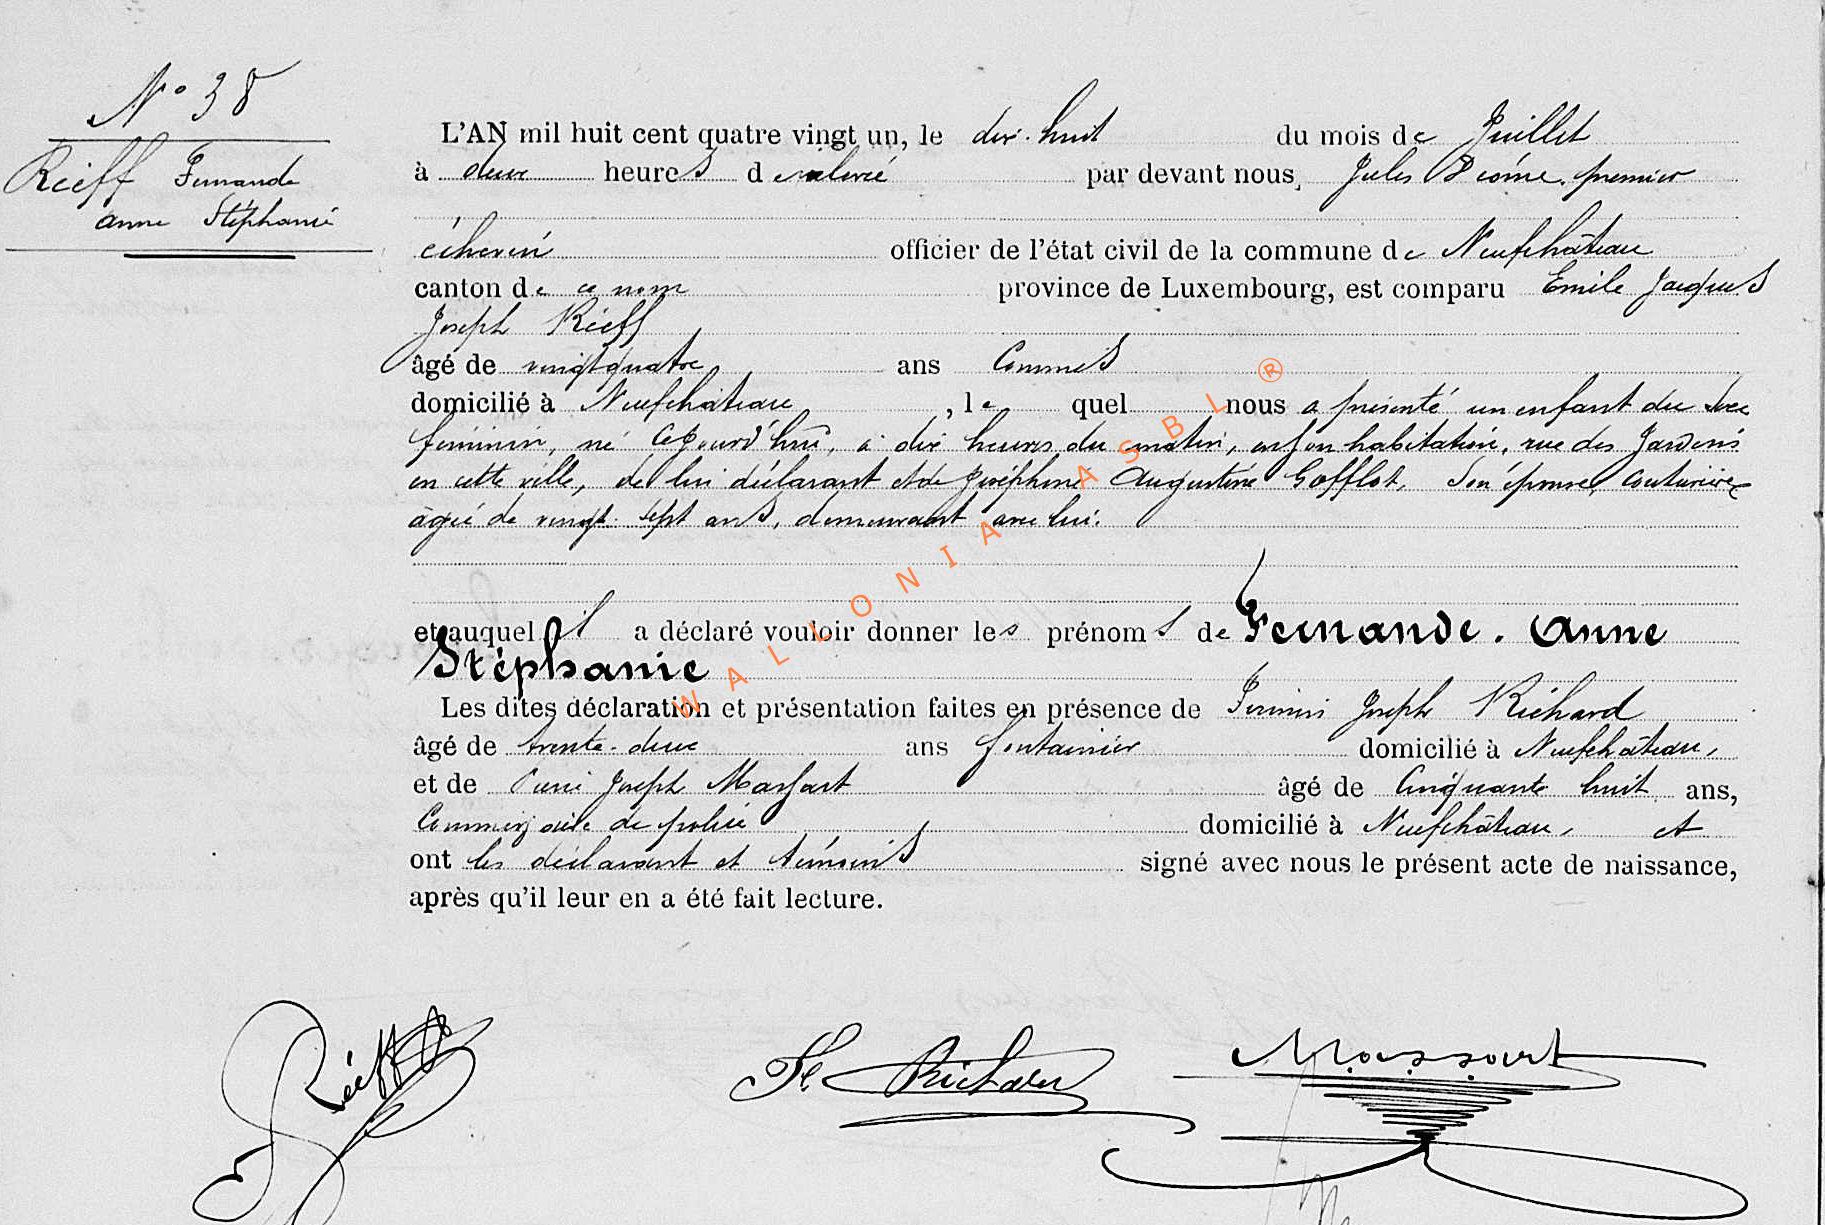 N° 38
Réeff Fernande
Anne Stéphanie
L'AN mil huit cent quatre vingt un, le dix-huit du mois de Juillet
à deux heures de relevée par devant nous, Jules premier
échevin officier de l'état civil de la commune de Neufchâteau
canton de ce nom province de Luxembourg, est comparu Emile Jacques
Joseph Réeff
âgé de vingt quatre ans Commis
domicilié à Neufchâteau, lequel nous a présenté un enfant du sexe
féminin, né cejourd'hui, à dix heures du matin, en son habitation, rue des Jardins
en cette ville, de lui déclarant et de Joséphine Augustine Gofflot, son épouse, couturière
âgée de vingt-sept ans, demeurant avec lui.
et auquel il a déclaré vouloir donner les prénoms de Fernande. Anne
Stéphanie
Les dites déclaration et présentation faites en présence de Firmin Joseph Richard
âgé de trente-deux ans fontainier domicilié à Neufchâteau,
et de Pierre Joseph Massart âgé de Cinquante huit ans,
Commissaire de police domicilié à Neufchâteau, et
ont les déclarant et témoins signé avec nous le présent acte de naissance,
après qu'il leur en a été fait lecture.
WALLONIA ASBL ®
Réeff
Richard
Massart